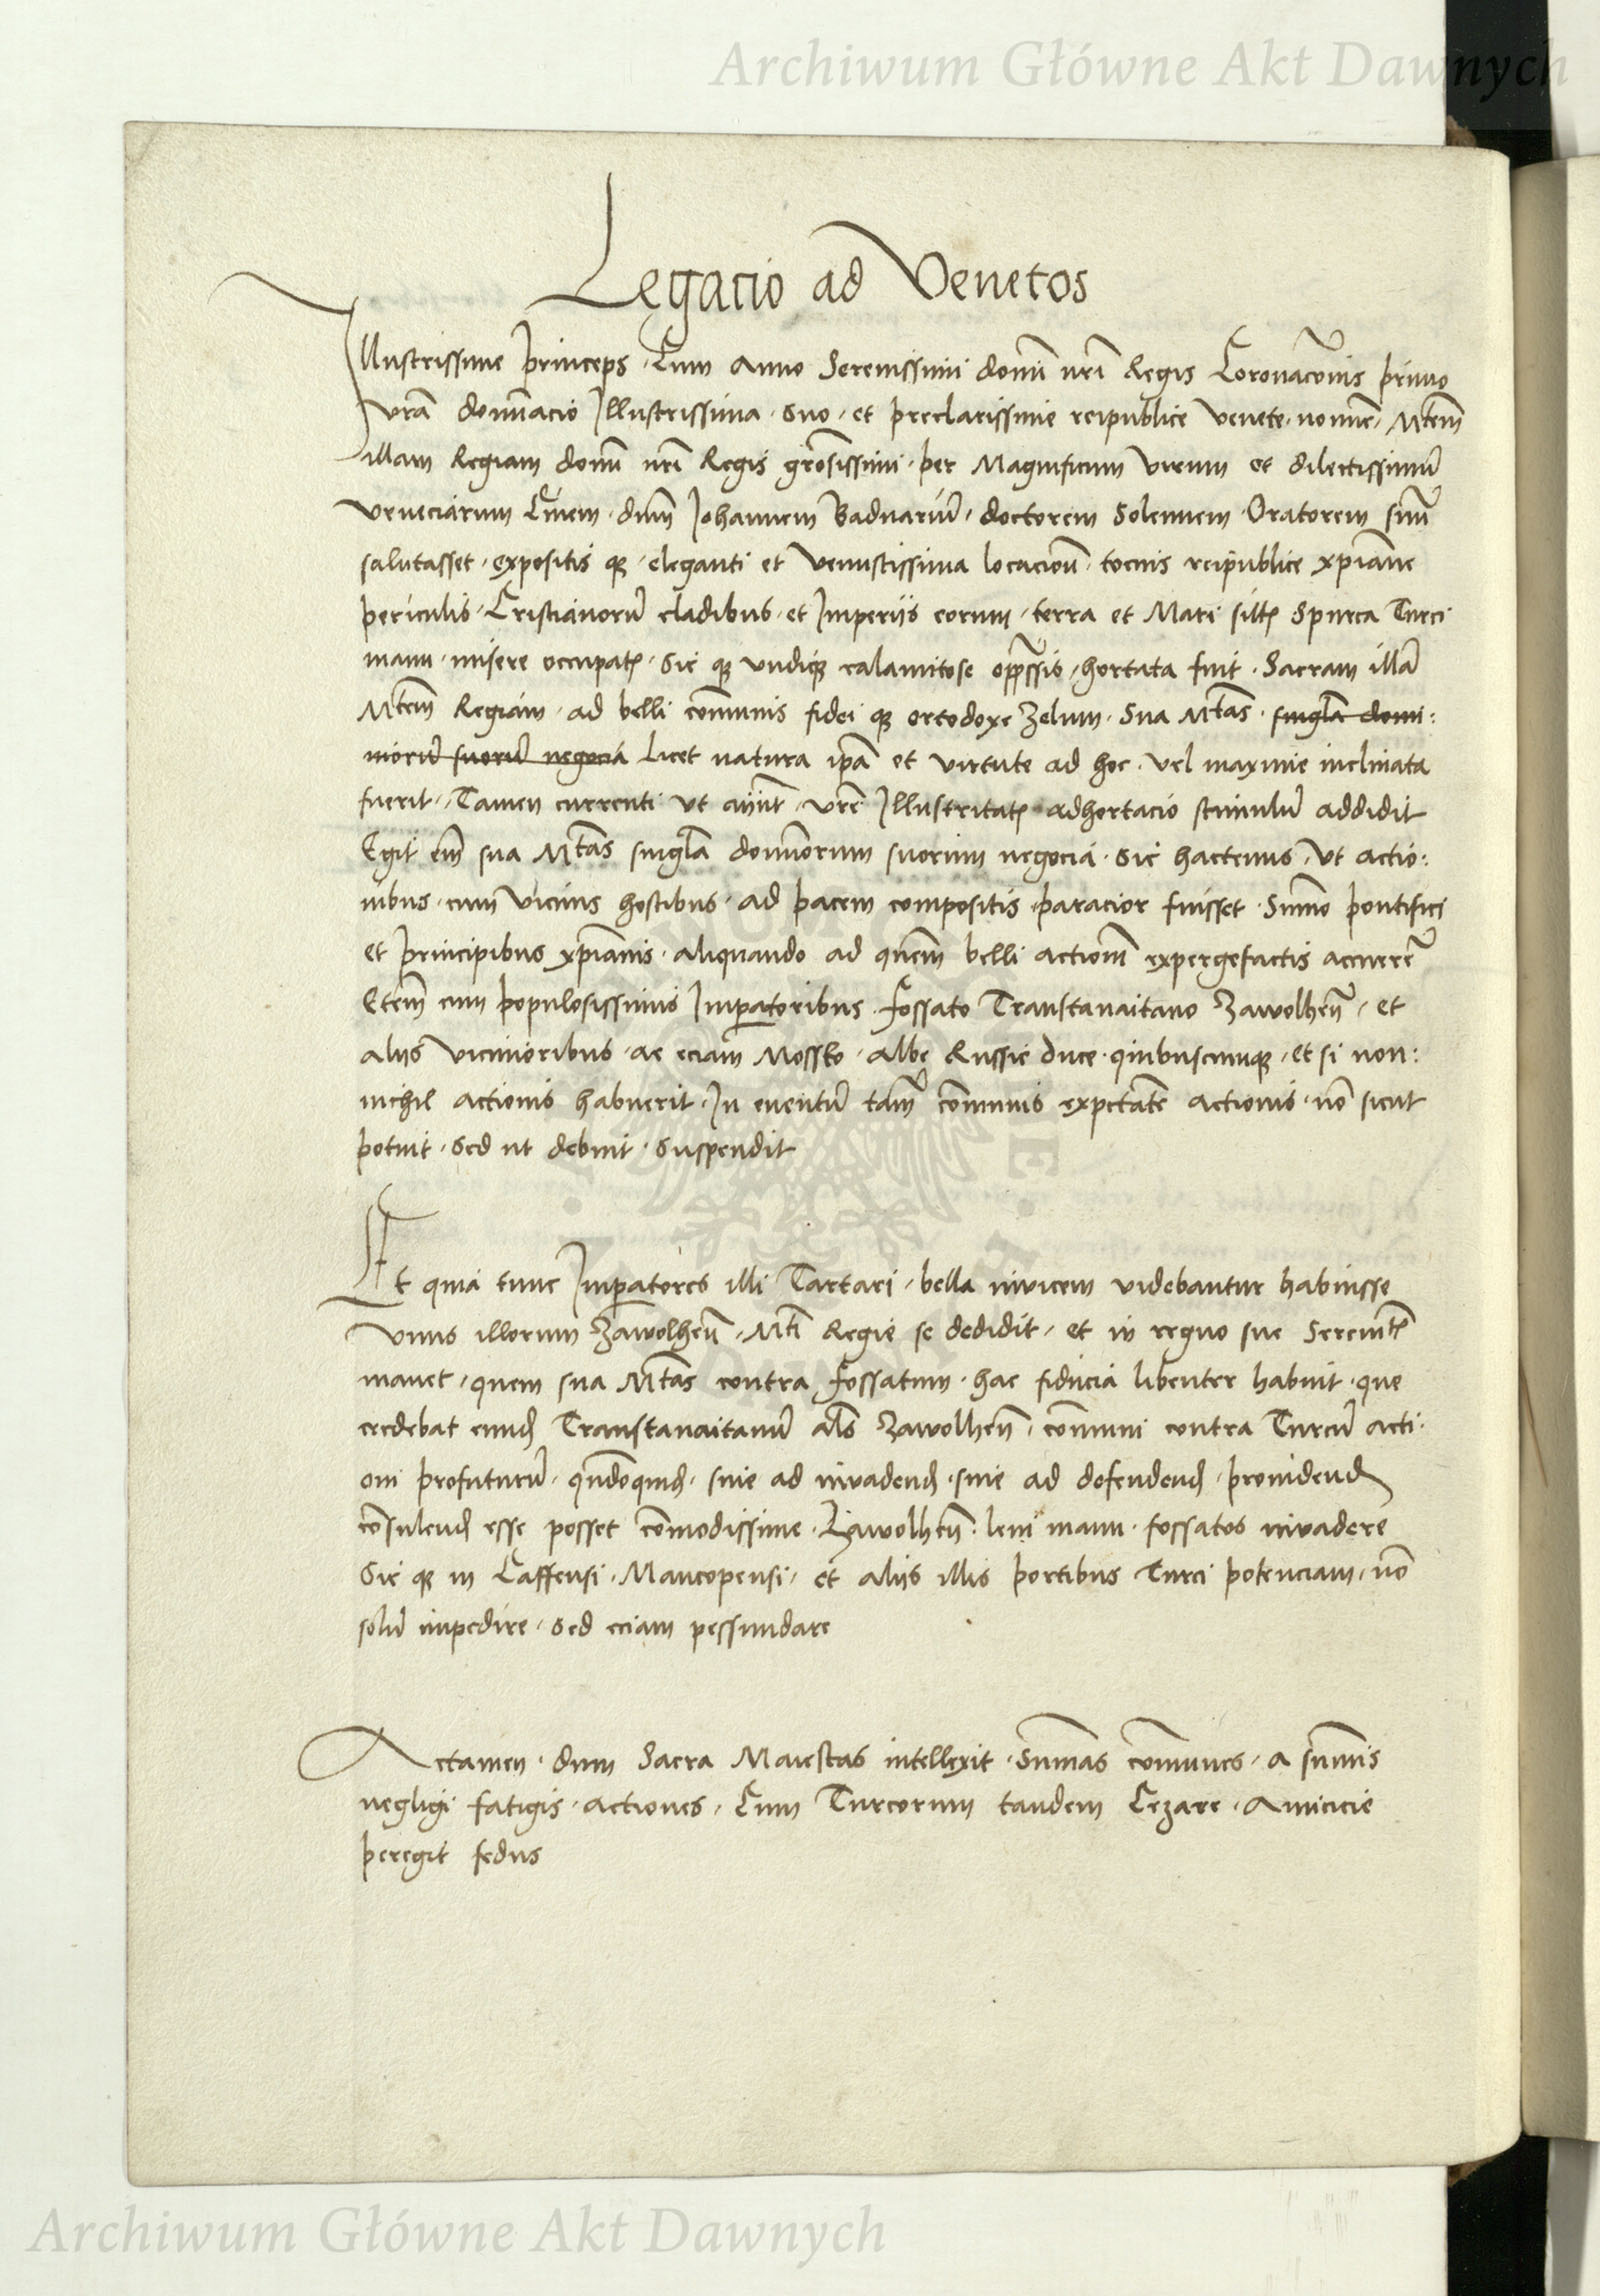 Archiwum Główne Akt Dawnych
Legacio ad Venetos
Illustrissime princeps · Cum Anno Serenissimi domi nri Regis Coronacois primo
Vra domiacio Illustrissima · suo · et preclarissime reipublice Venete · nomie · Mtem
illam Regiam domi nri Regis grosissimi · per Magnificum virum et dilectissimu
veneciarum Civem · dnm Johannem Baduariu · doctorem Solennem · Oratorem suu
salutasset · expositis qz · eleganti et venustissima locacione · tocius reipublice xpiane
periculis · Cristianoru cladibus · et Imperiis eorum · terra et Mari siltr Spurca Turci
manu · misere occupatis · sic qz undiqz calamitose oppressis · hortata fuit · Sacram illa
Mtem Regiam · ad belli comunis fidei qz ortodoxe zelum · Sua Mtas · singla domi:
nioru suoru negocia Licet natura ipa et virtute ad hoc · vel maxime inclinata
fuerit · Tamen currenti ut aiunt · vre Illustritatis adhortacio stimulu addidit
Egit em sua Mtas singla dominiorum suorum negocia · sic hactenus · ut actio:
nibus · cum vicinis hostibus · ad pacem compositis · paracior fuisset · Summo pontifici
et principibus xpianis · aliquando ad quem belli actionem expergefactis accurere
Etem cum populosissimis Imperatoribus · Fossato Transtanaitano Zawolhen · et
aliis vicinioribus · ac eciam Mossko · albe Russie duce · quibuscunqz · et si non:
nichil actionis habuerit · In eventu tam comunis expectate actionis · no sicut
potuit · sed ut debuit · suspendit
Et quia tunc Imperatores illi Tartari · bella invicem videbantur habuisse
Unus illorum Zawolhen · Mti Regie se dedidit · et in regno sue Serenitatis
manet · quem sua Mtas contra Fossatum · hac fiducia libenter habuit · que
credebat eund Transtanaitanu als Zawolhen · comuni contra Turcu acti:
oni profuturu · qndoquid · sive ad invadend · sive ad defendend · providend
consulend esse posset comodissime · Zawolhen · leni manu · fossatos invadere
Sic qz in Caffensi · Mancopensi · et aliis illis portibus Turci potenciam · no
solu impedire · sed eciam pessundare
Actamen · dum Sacra Maiestas intellexit · Summas comunes · a summis
negligi fatigis · actiones · Cum Turcorum tandem Cezare · Amicicie
peregit fedus
Archiwum Główne Akt Dawnych